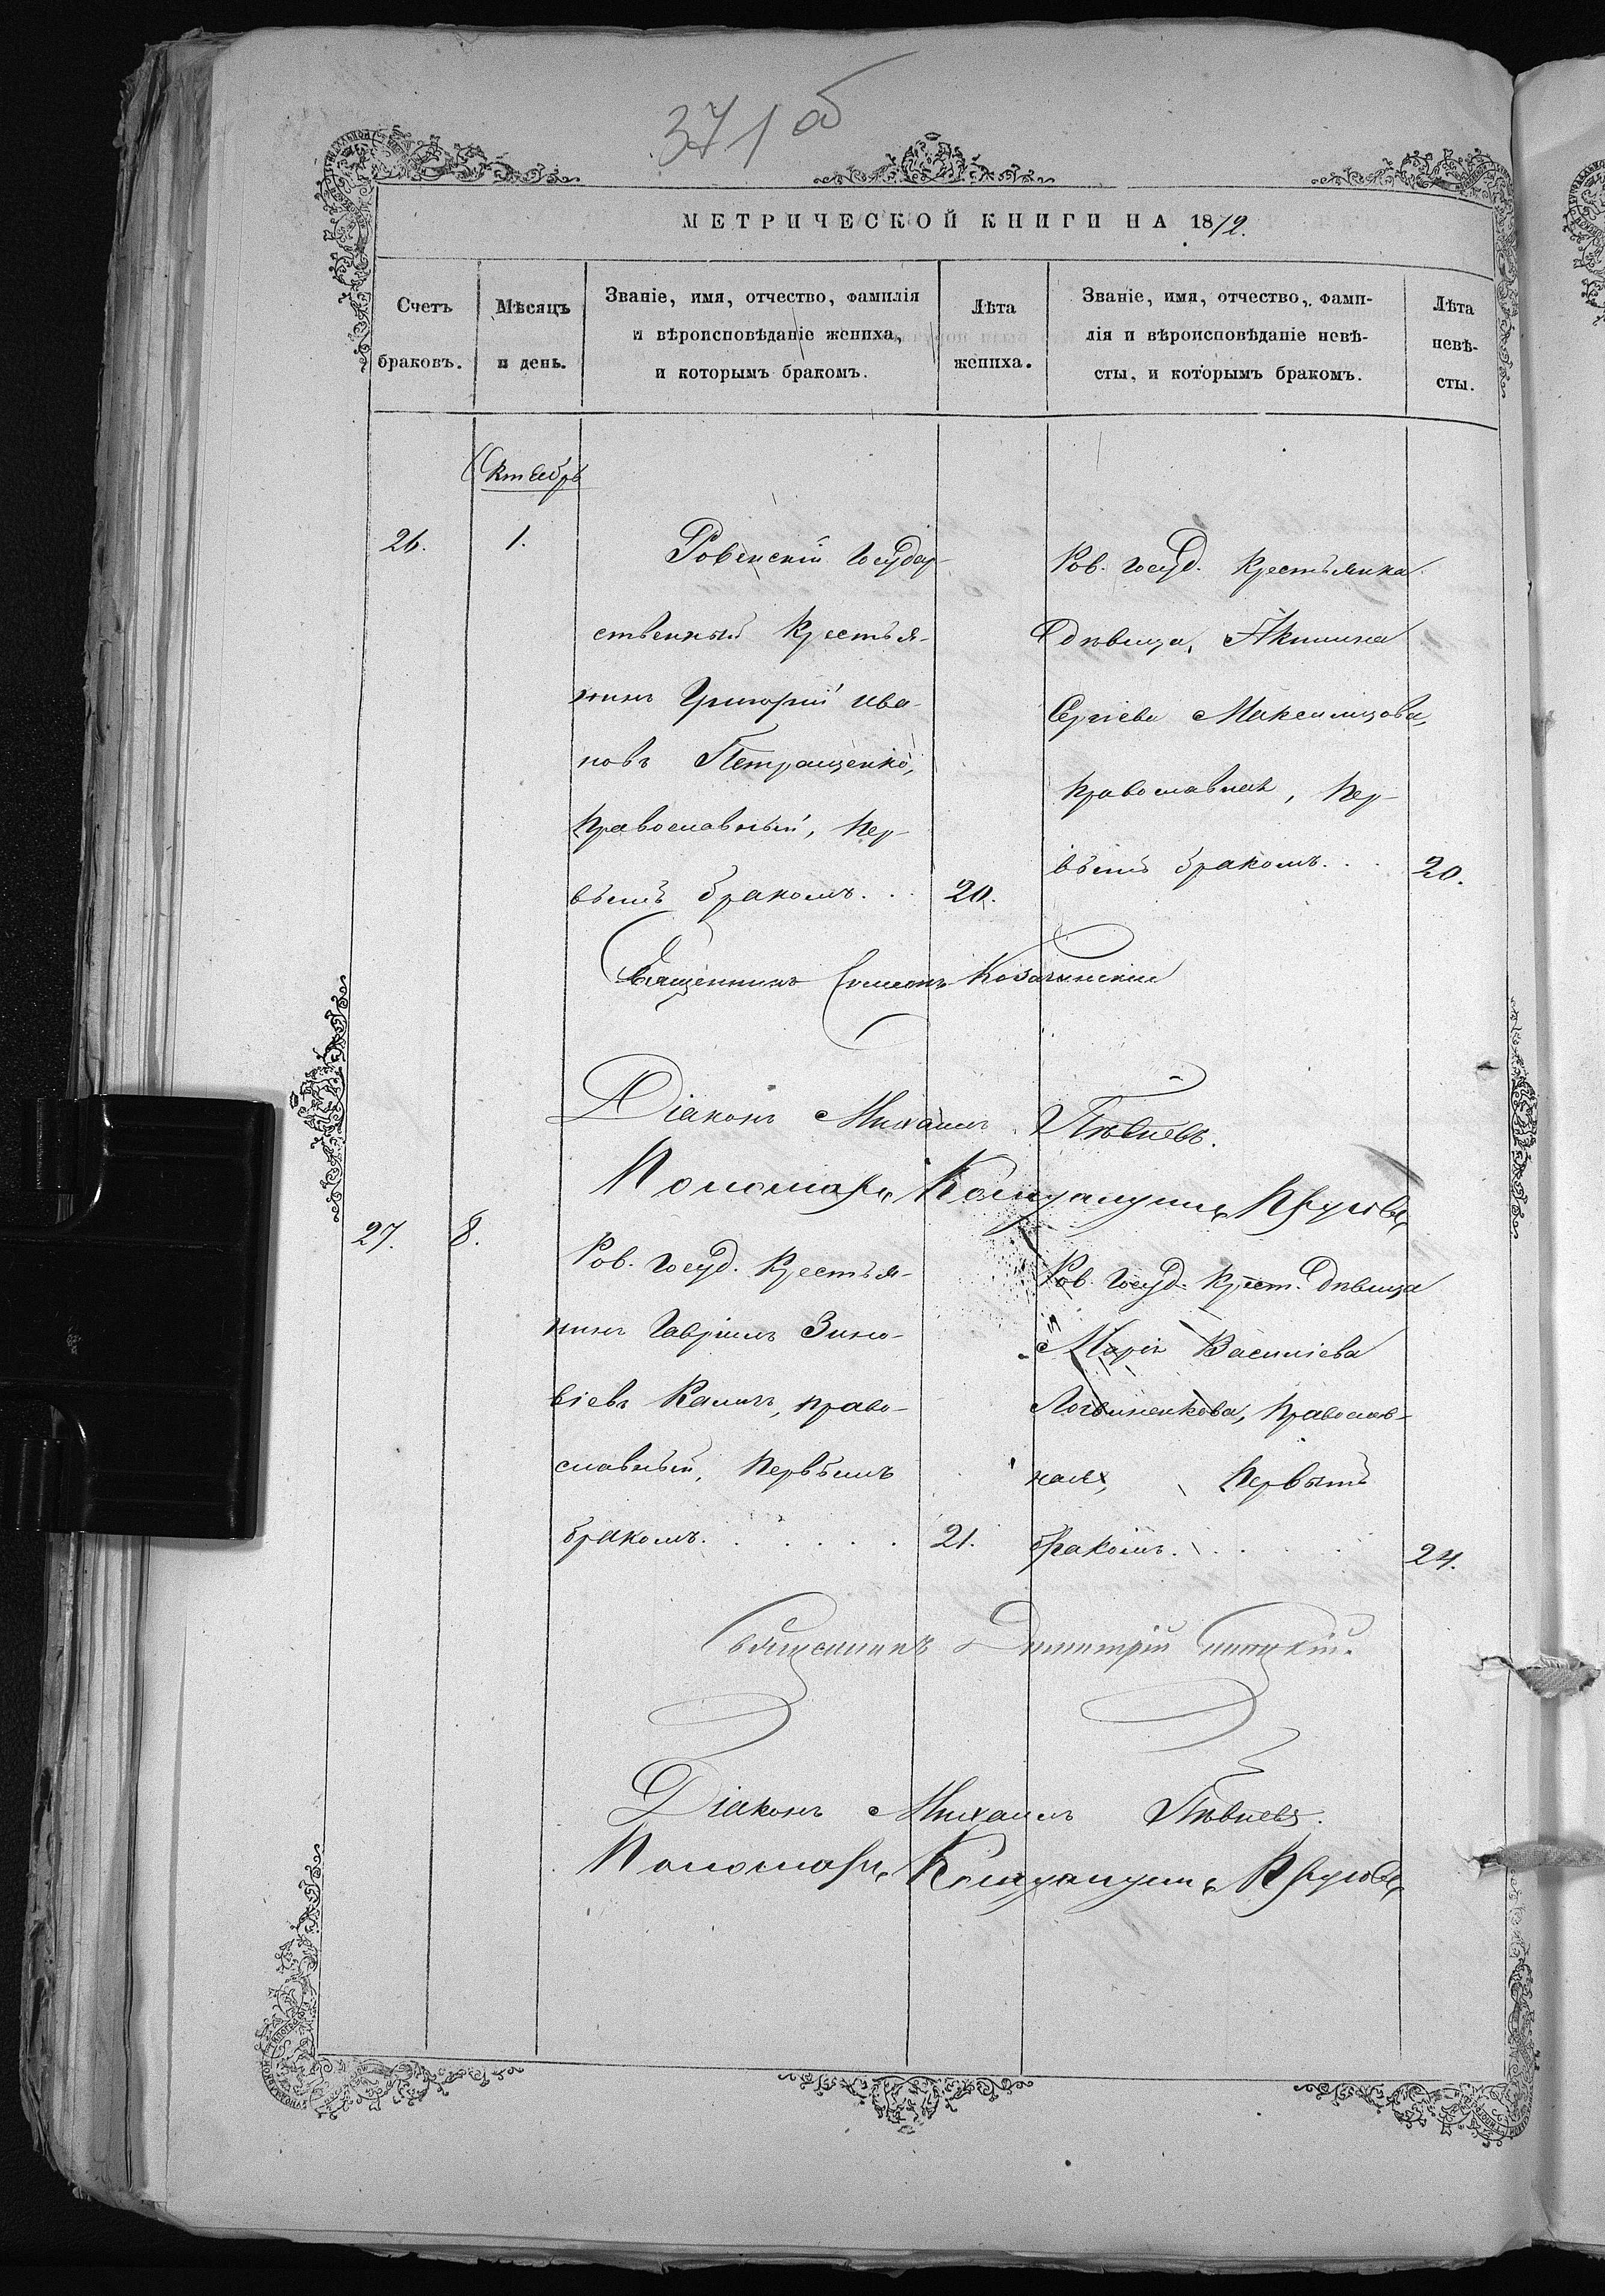 371 об
МЕТРИЧЕСКОЙ КНИГИ НА 1872.
Счетъ браковъ.
Мѣсяцъ и день.
Званіе, имя, отчество, фамилія
и вѣроисповѣданіе жениха,
и которымъ бракомъ.
Лѣта жениха.
Званіе, имя, отчество, фами-
лія и вѣроисповѣданіе невѣ-
сты, и которымъ бракомъ.
Лѣта невѣ-
сты.
Октябрь
26.
1.
Ровенскій Государ-
ственный Крестья-
нинъ Григорій Ива-
новъ Петращенко,
православный, пер-
вымъ бракомъ...
20.
Ров. Госуд. Крестьянка
дѣвица, Акилина
Сергіева Максимцова,
православная, пер-
вымъ бракомъ...
20.
Священникъ Симеонъ Козачинскій
Діаконъ Михаилъ Пѣвневъ.
Пономарь Константинъ Круговъ
27.
8.
Ров. Госуд. Крестья-
нинъ Гавріилъ Зино-
віевъ Калачъ, право-
славный, первымъ
бракомъ......
21.
Ров. Госуд. Крест. дѣвица
Марія Василіева
Логвиненкова, православ-
ная, первымъ
бракомъ....
24.
Священникъ Димитрій
Діаконъ Михаилъ Пѣвневъ.
Пономарь Константинъ Круговъ